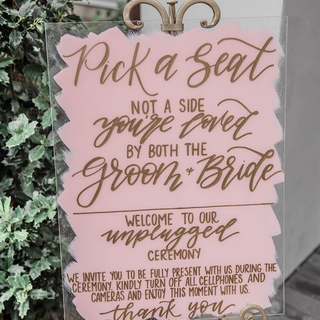 Pick a Seat
NOT A SIDE
you're loved
BY BOTH THE
Groom + Bride
WELCOME TO OUR
unplugged
CEREMONY
WE INVITE YOU TO BE FULLY PRESENT WITH US DURING THE
CEREMONY. KINDLY TURN OFF ALL CELLPHONES AND
CAMERAS AND ENJOY THIS MOMENT WITH US.
thank you